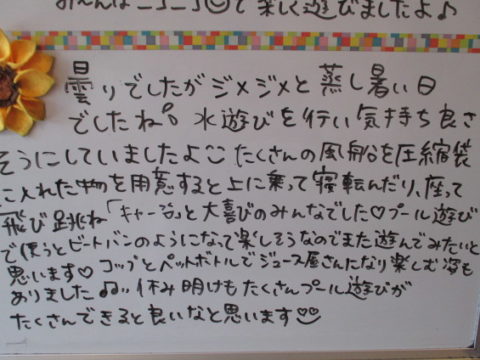 みんなニコニコで楽しく遊びましたよ♪
曇りでしたがジメジメと蒸し暑い日
でしたね。水遊びを行い気持ち良さ
そうにしていましたよ たくさんの風船を圧縮袋
に入れた物を用意すると上に乗って寝転んだり、座って
飛び跳ね「キャー」と大喜びのみんなでした♡プール遊び
で使うとビートバンのようになって楽しそうなのでまた遊んでみたいと
思います♡コップとペットボトルでジュース屋さんになり楽しむ姿も
ありました♫休み明けもたくさんプール遊びが
たくさんできると良いなと思います